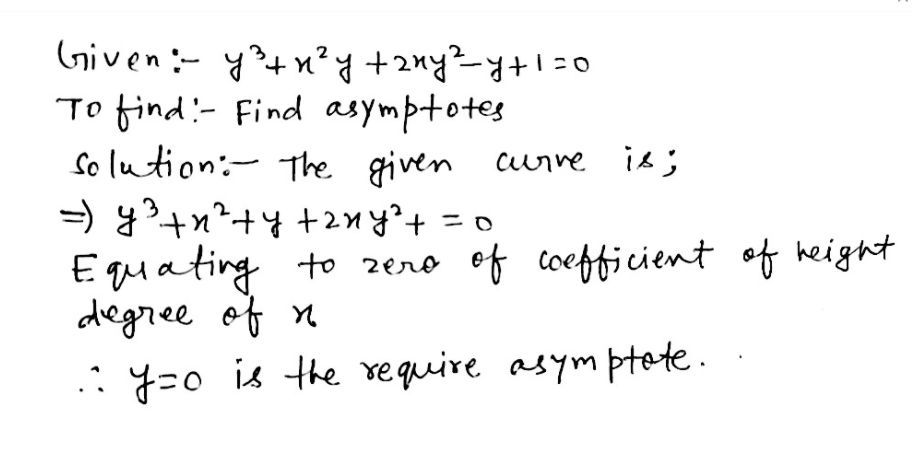 Given :- y³+x²y+2xy²-y+1=0
To find :- Find asymptotes
Solution :- The given curve is ;
=) y³+x²+y+2xy²+ = 0
Equating to zero of coefficient of height
degree of x
∴ y=0 is the require asymptote.